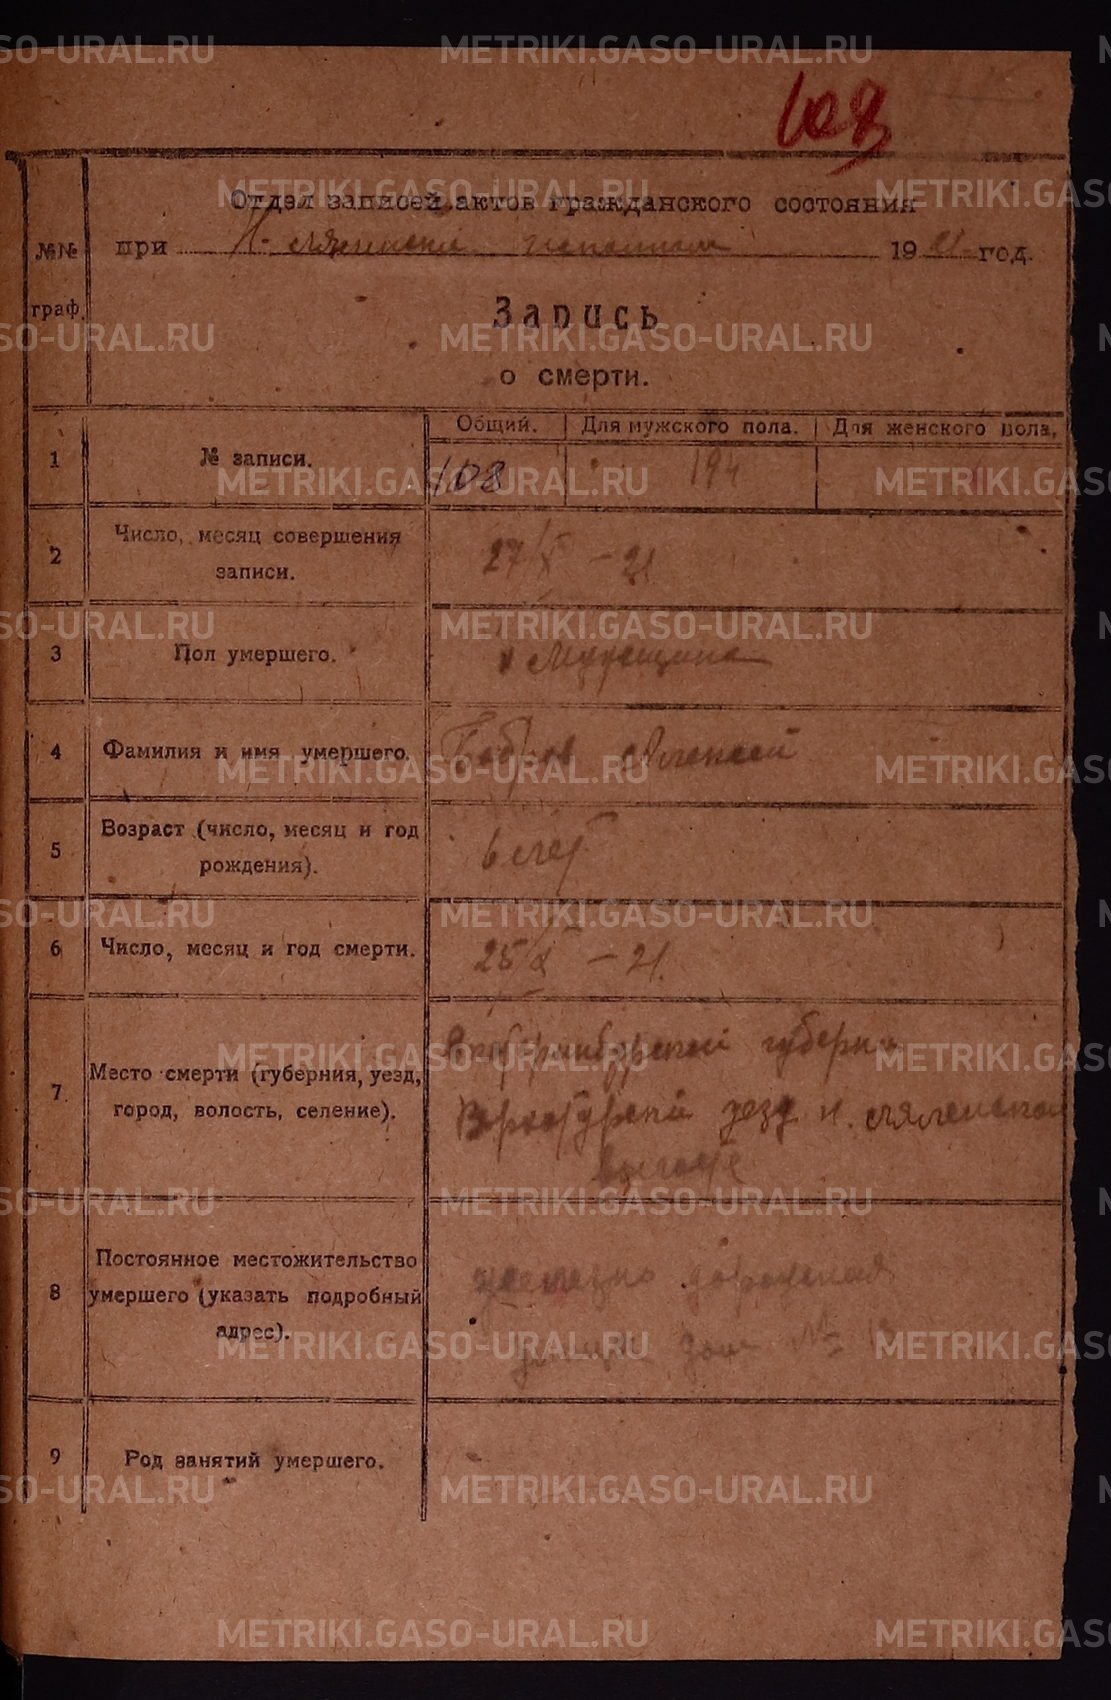 108
Отдел записей актов гражданского состояния
№№ при Н. Лялинской 1921 год.
граф.
Запись
о смерти.
Общий. Для мужского пола. Для женского пола.
1 № записи. 108 194
2 Число, месяц совершения записи. 27/X – 21
3 Пол умершего. Мущина
4 Фамилия и имя умершего. Бобров Алексей
5 Возраст (число, месяц и год рождения). 6 лет
6 Число, месяц и год смерти. 25/X – 21.
7 Место смерти (губерния, уезд, город, волость, селение).
губерни
уезд Н. Лялинской
8 Постоянное местожительство умершего (указать подробный адрес).
дом №
9 Род занятий умершего.
METRIKI.GASO-URAL.RU